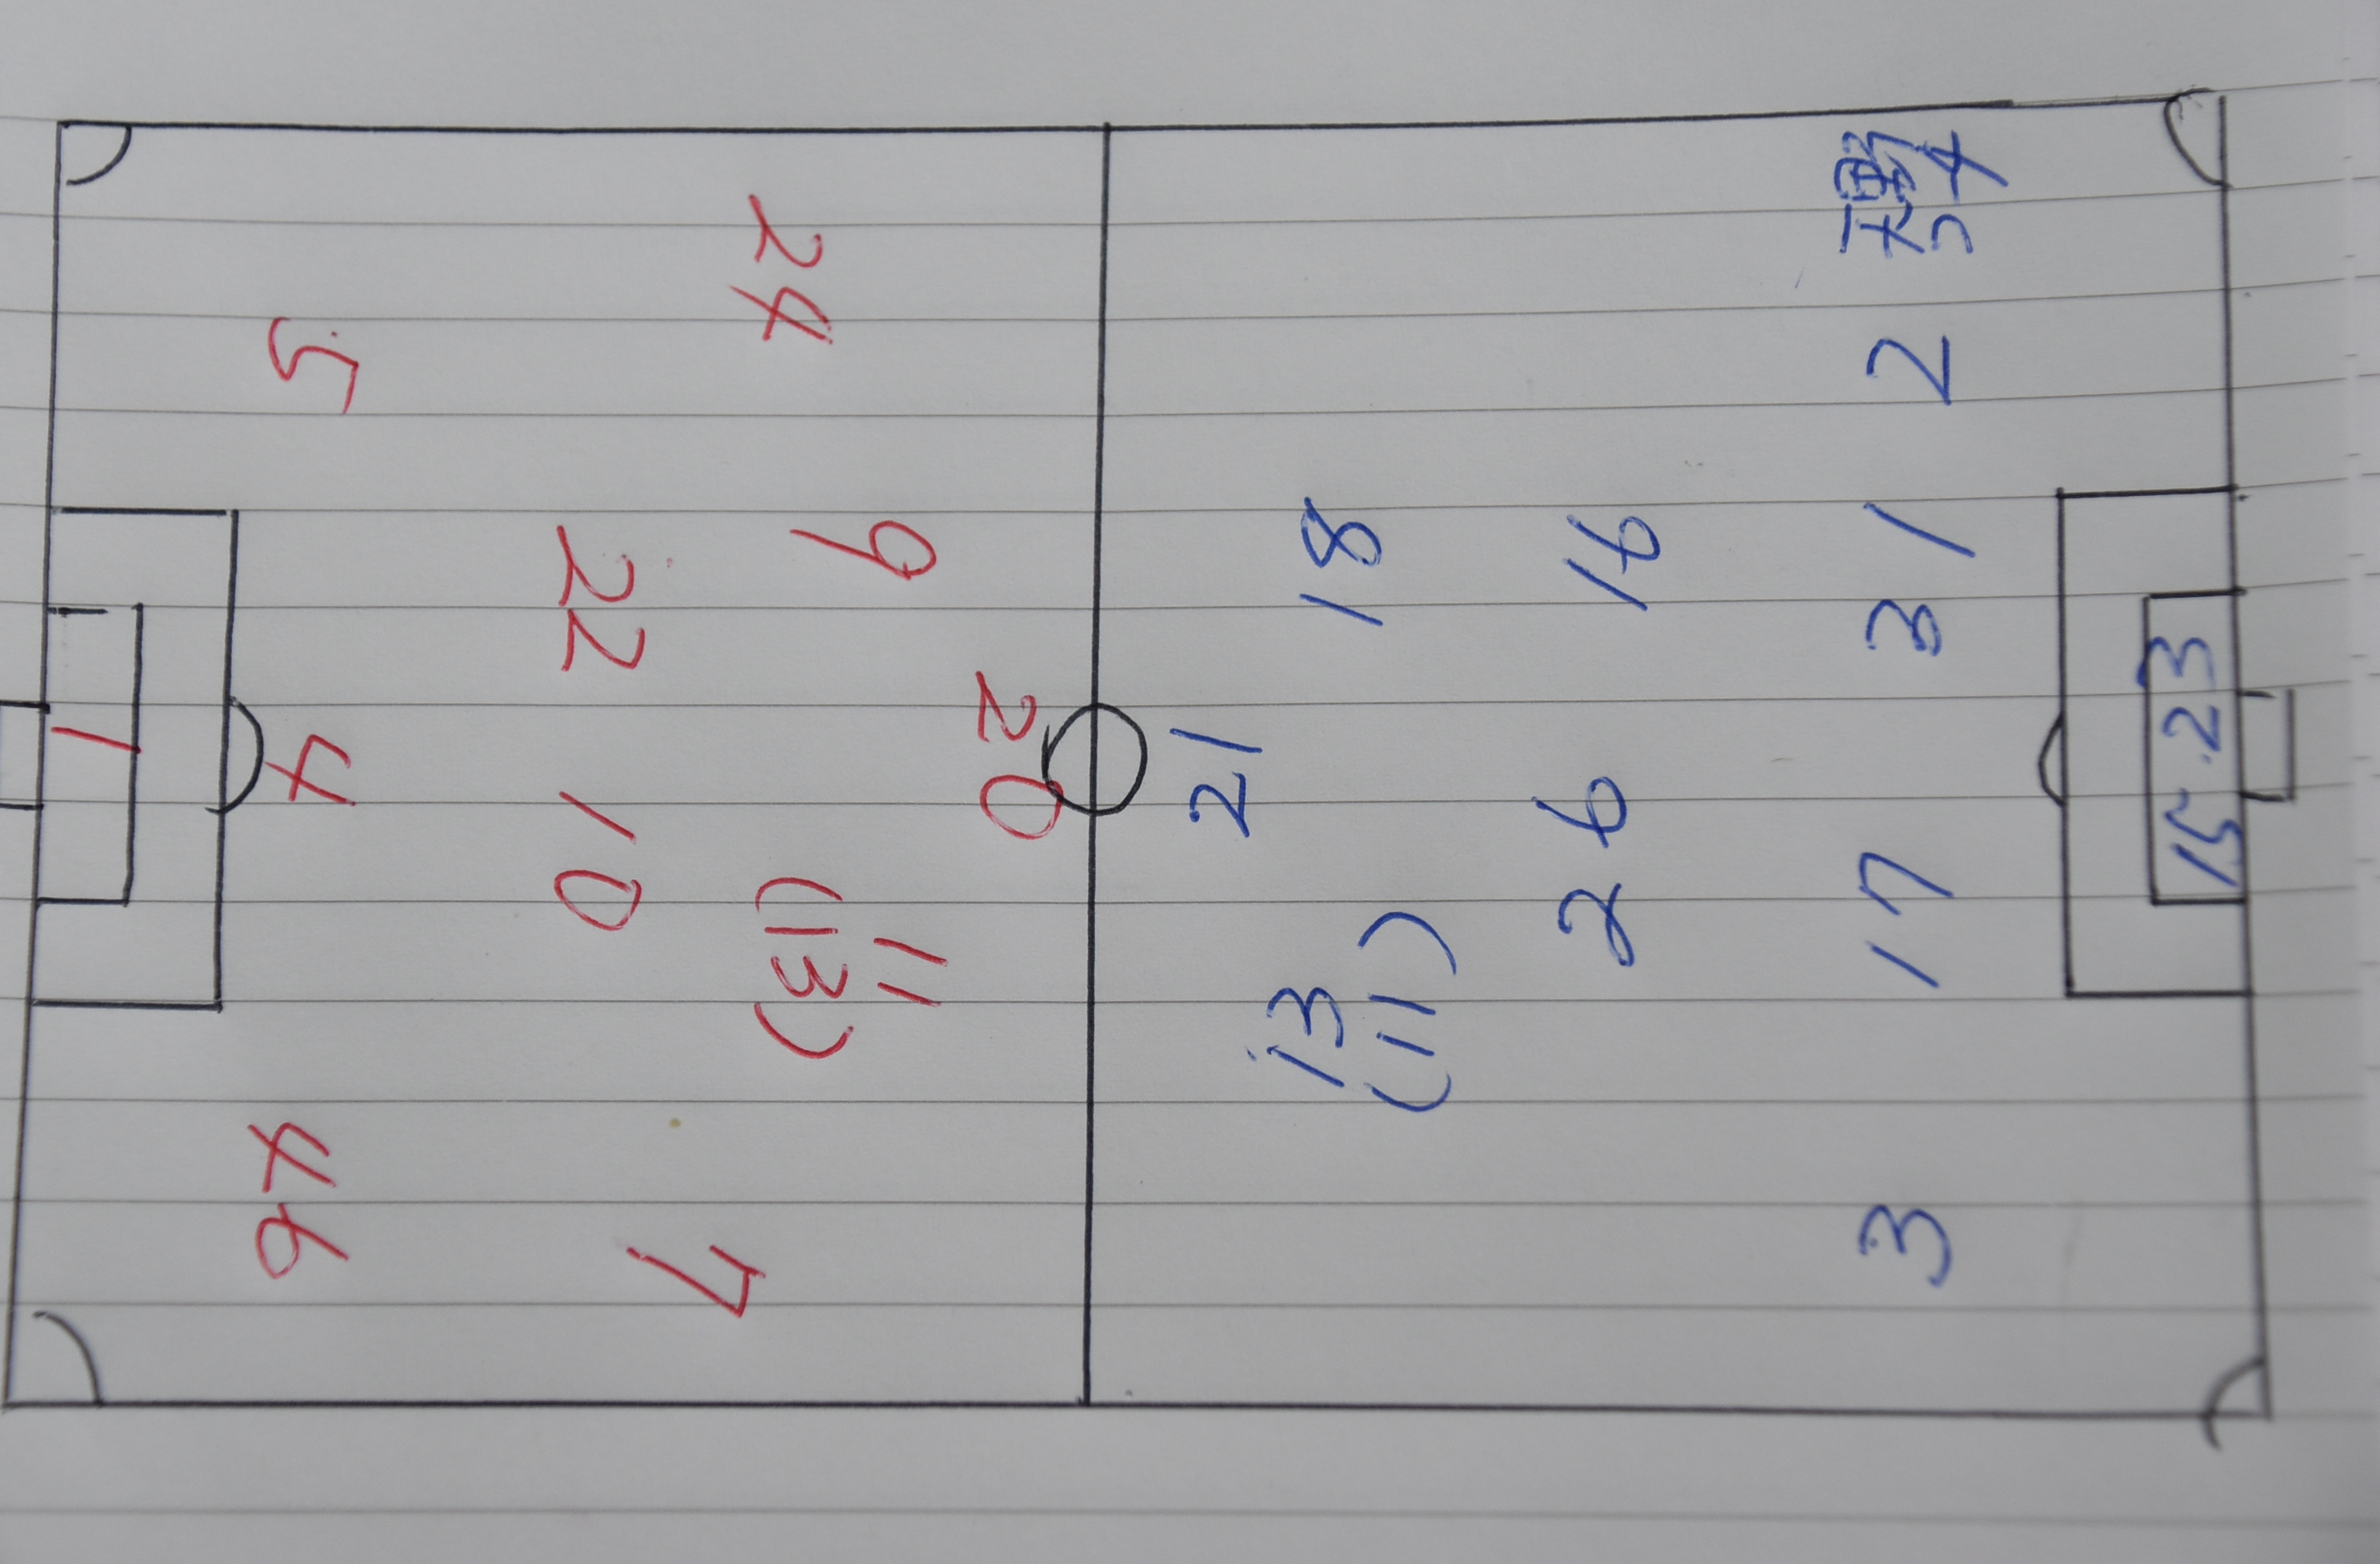 24
5
9
22
20
1
4
10
11
(13)
46
7
2
18
16
31
21
26
17
15.23
13
(11)
3